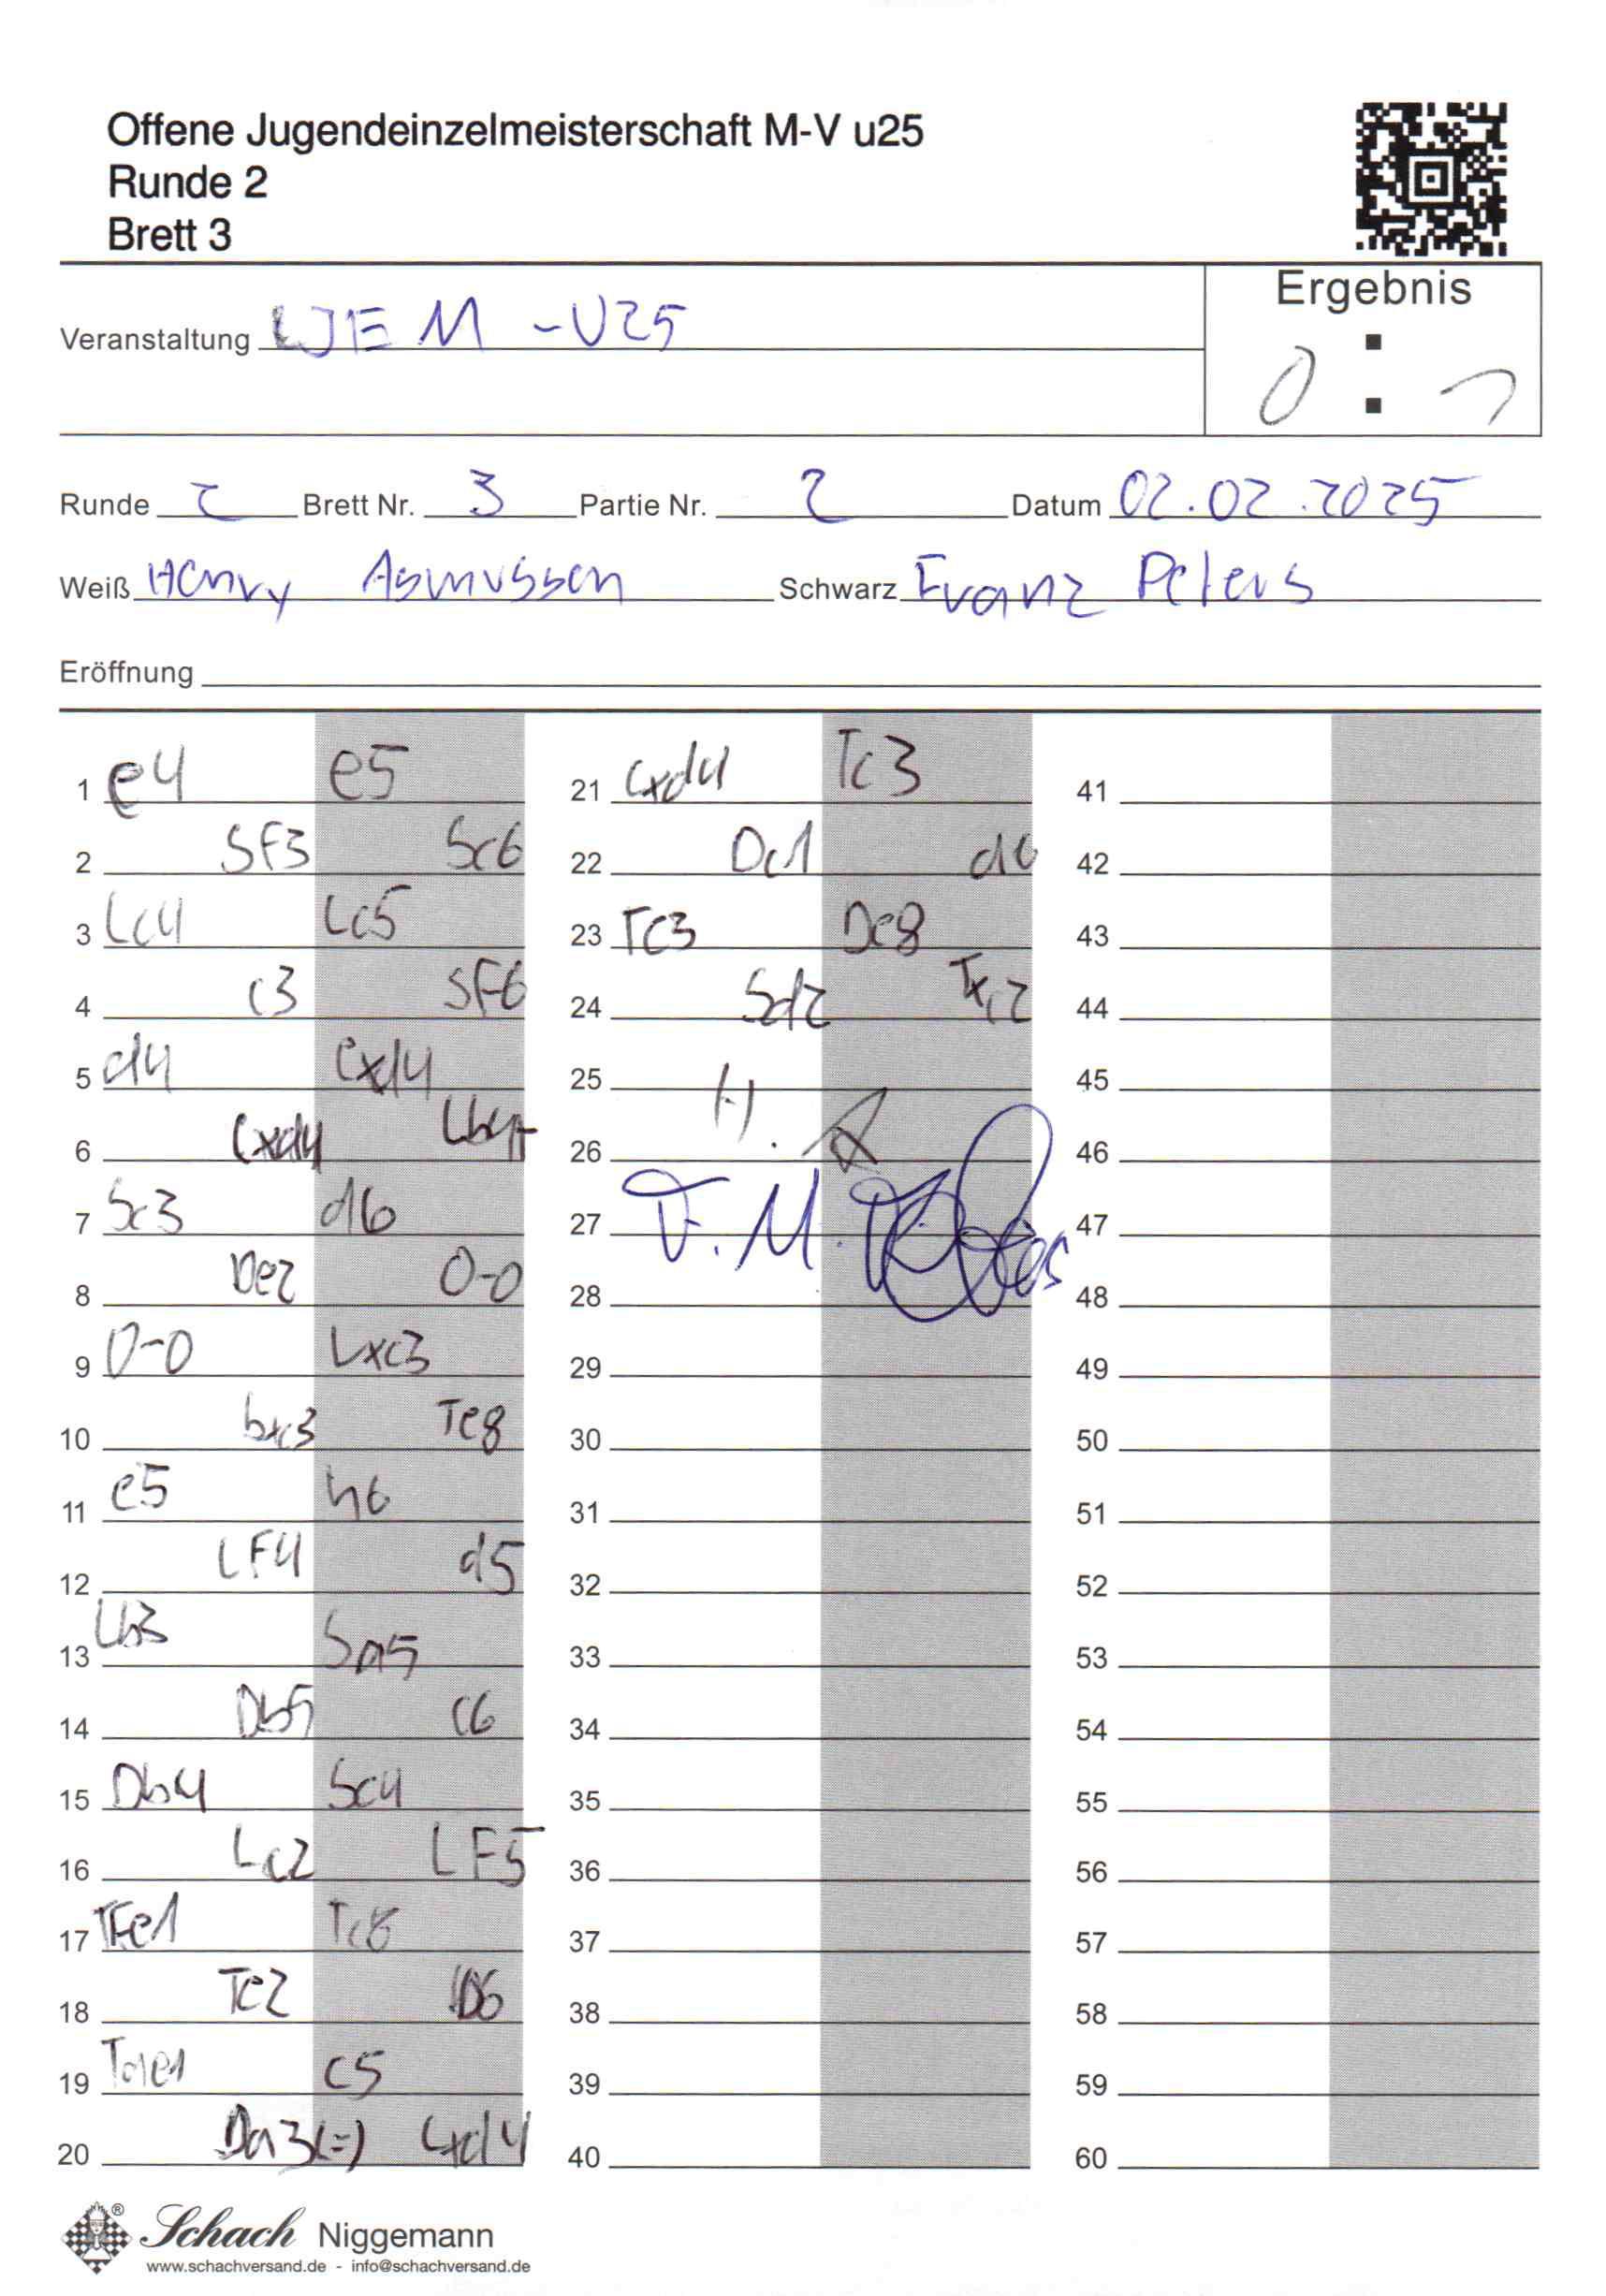 Offene Jugendeinzelmeisterschaft M-V u25
Runde 2
Brett 3
Ergebnis
0 : 1
Veranstaltung LJEM -U25
Runde 2 Brett Nr. 3 Partie Nr. 2 Datum 02.02.2025
Weiß Henry Asmussen Schwarz Franz Peters
Eröffnung
1 e4 e5
2 SF3 Sc6
3 Lc4 Lc5
4 c3 SF6
5 d4 exd4
6 cxd4 Lb4+
7 Sc3 d6
8 De2 0-0
9 0-0 Lxc3
10 bxc3 Te8
11 e5 h6
12 LF4 d5
13 Lb3 Sa5
14 Db5 c6
15 Db4 Sc4
16 Lc2 LF5
17 TFe1 Tc8
18 Te2 b6
19 Tae1 c5
20 Da3(=) cxd4
21 cxd4 Tc3
22 Dc1
23 Tc3 Dc8
24 Sd2 Txc2
25
26
27 F. M.
28
29
30
31
32
33
34
35
36
37
38
39
40
41
42
43
44
45
46
47
48
49
50
51
52
53
54
55
56
57
58
59
60
® Schach Niggemann
www.schachversand.de - info@schachversand.de